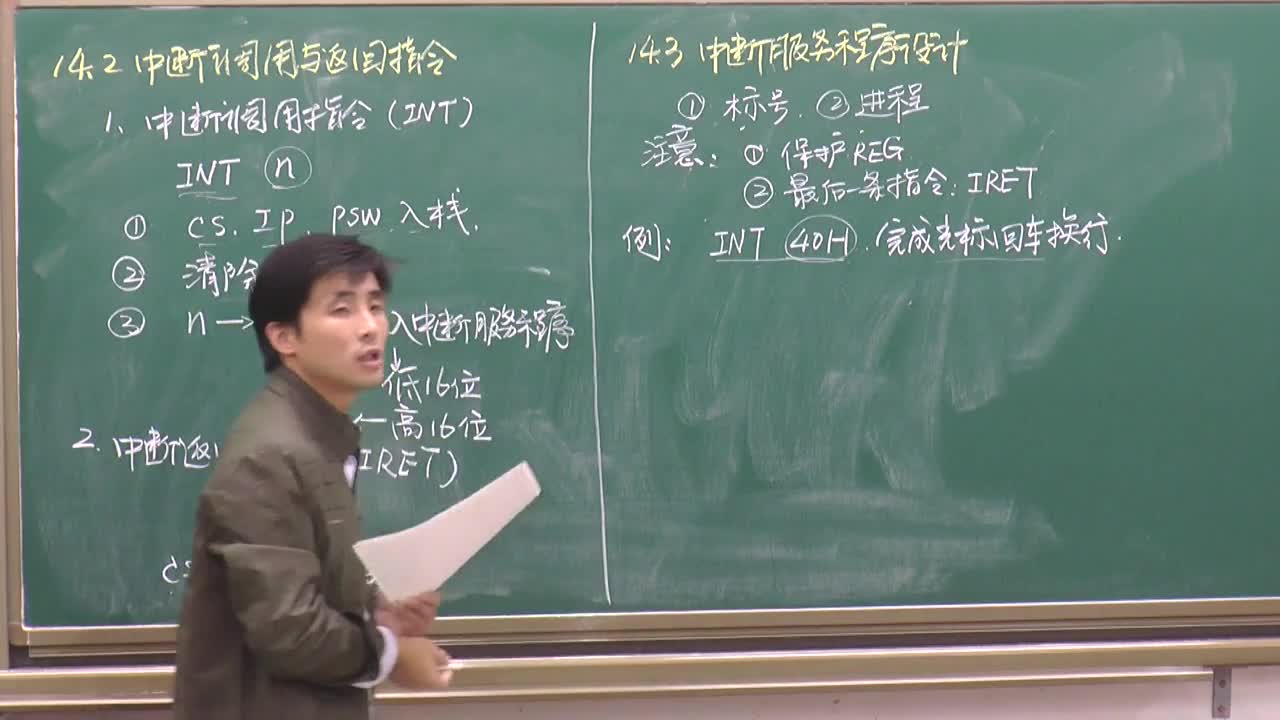 14.2 中断调用与返回指令
1、中断调用指令(INT)
INT n
① CS、IP、PSW 入栈.
② 清除
③ n→ 入中断服务程序
低16位
←高16位
2. 中断返 IRET)
14.3 中断服务程序设计
① 标号. ② 进程
注意: ① 保护REG.
② 最后一条指令: IRET
例: INT 40H. 完成光标回车换行.